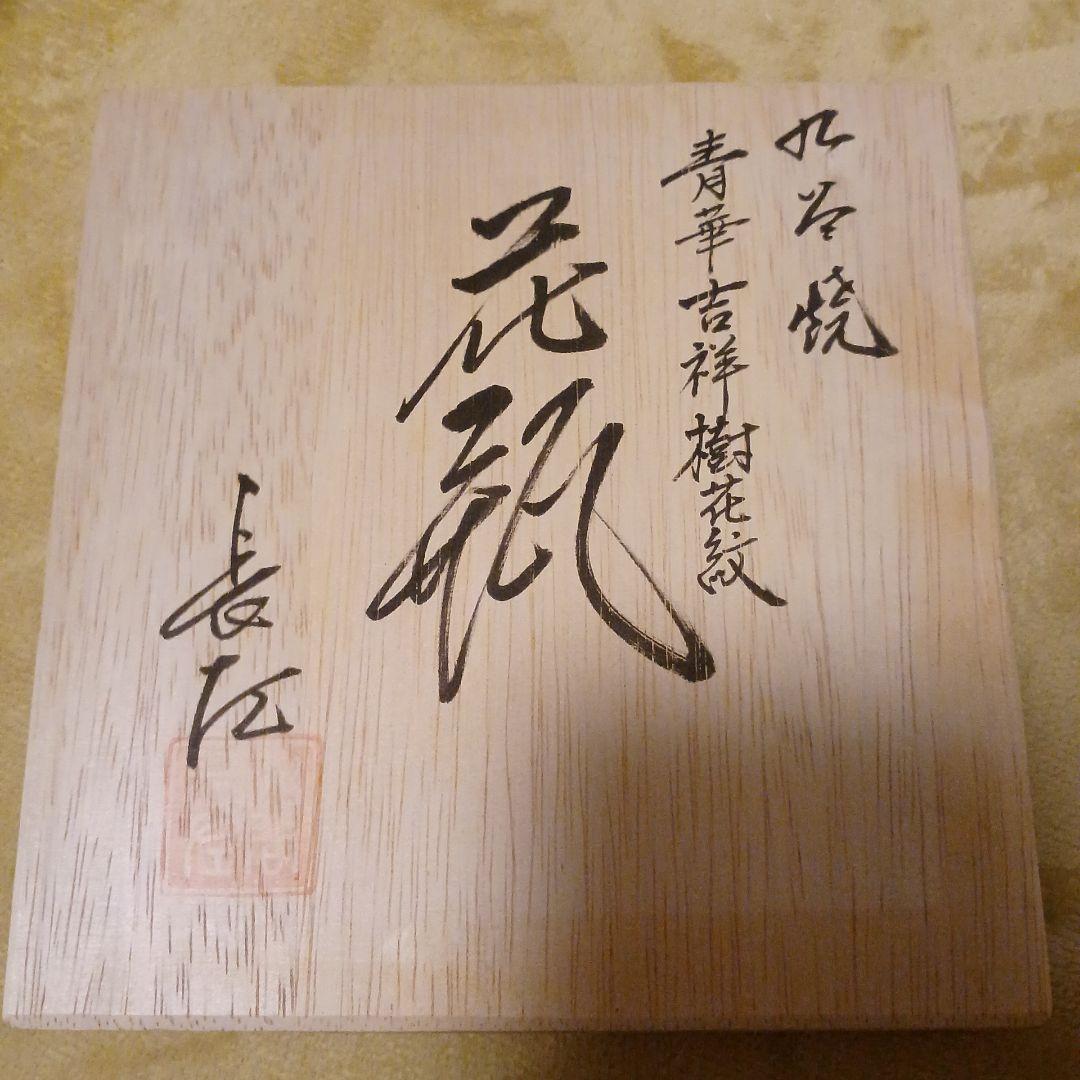 九谷焼
青華吉祥樹花紋
花瓶
長左